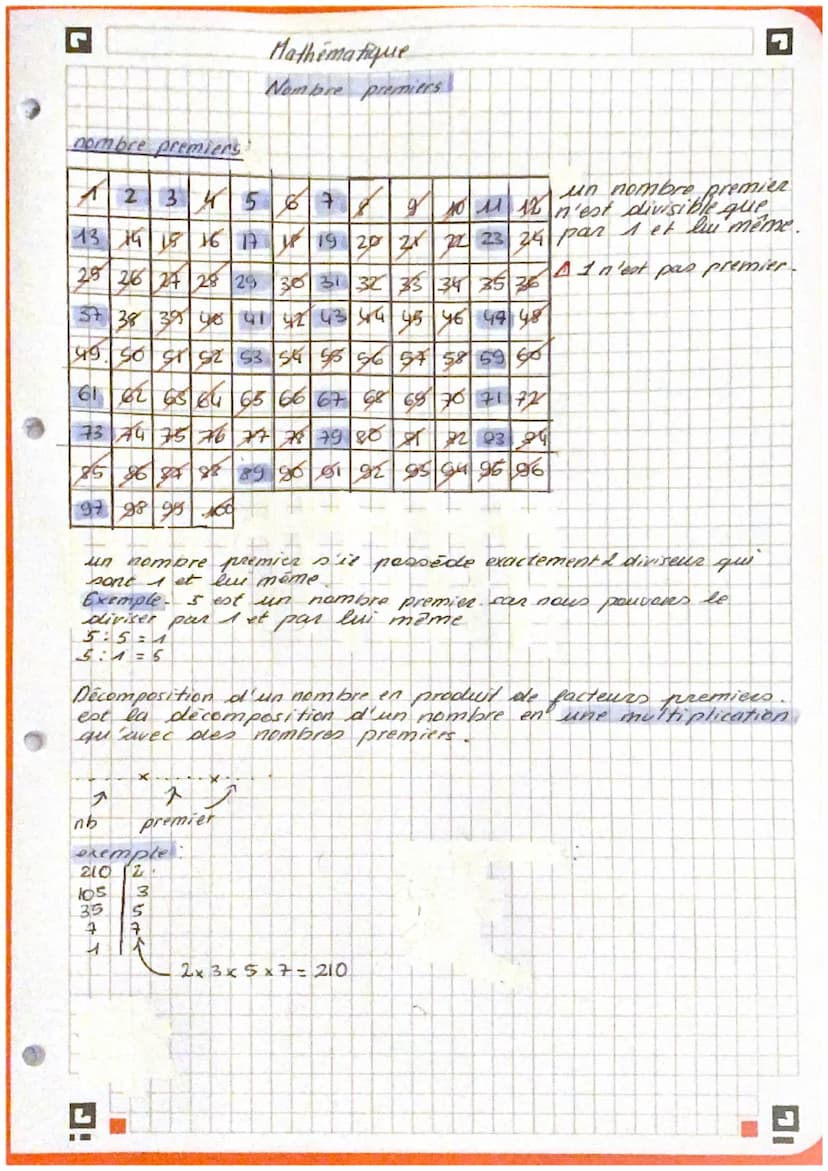 Mathématique
Nombre premiers
nombre premiers:
1 2 3 4 5 6 7 8 9 10 11 12
13 14 15 16 17 18 19 20 21 22 23 24
25 26 27 28 29 30 31 32 33 34 35 36
37 38 39 40 41 42 43 44 45 46 47 48
49. 50 51 52 53 54 55 56 57 58 59 60
61 62 63 64 65 66 67 68 69 70 71 72
73 74 75 76 77 78 79 80 81 82 83 84
85 86 87 88 89 90 91 92 93 94 95 96
97 98 99 100
un nombre premier
n'est divisible que
par 1 et lui même.
⚠ 1 n'est pas premier.
un nombre premier s'il possède exactement 2 diviseur qui
sont 1 et lui même.
Exemple. 5 est un nombre premier car nous pouvons le
diviser par 1 et par lui même
5 : 5 = 1
5 : 1 = 5
Décomposition d'un nombre en produit de facteurs premiers.
est la décomposition d'un nombre en une multiplication
qu'avec des nombres premiers.
..... x ..... x .....
nb premier
exemple:
210 | 2
105 | 3
35 | 5
7 | 7
1
2 x 3 x 5 x 7 = 210